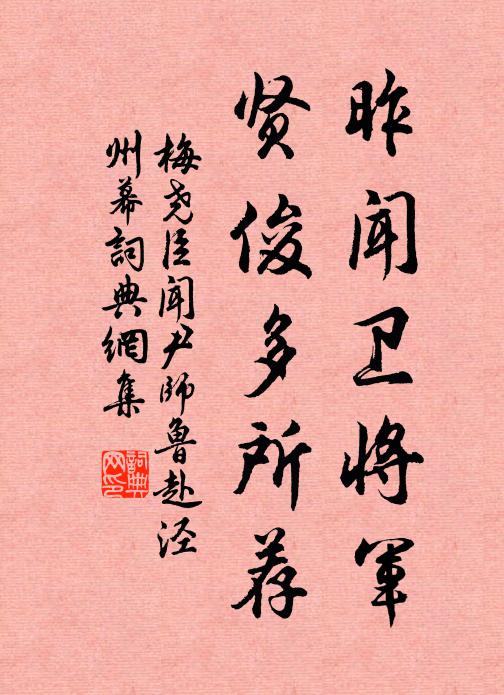 昨闻卫将军
贤俊多所荐
梅尧臣闻尹师鲁赴泾
州幕詞典網集
詞典
网印